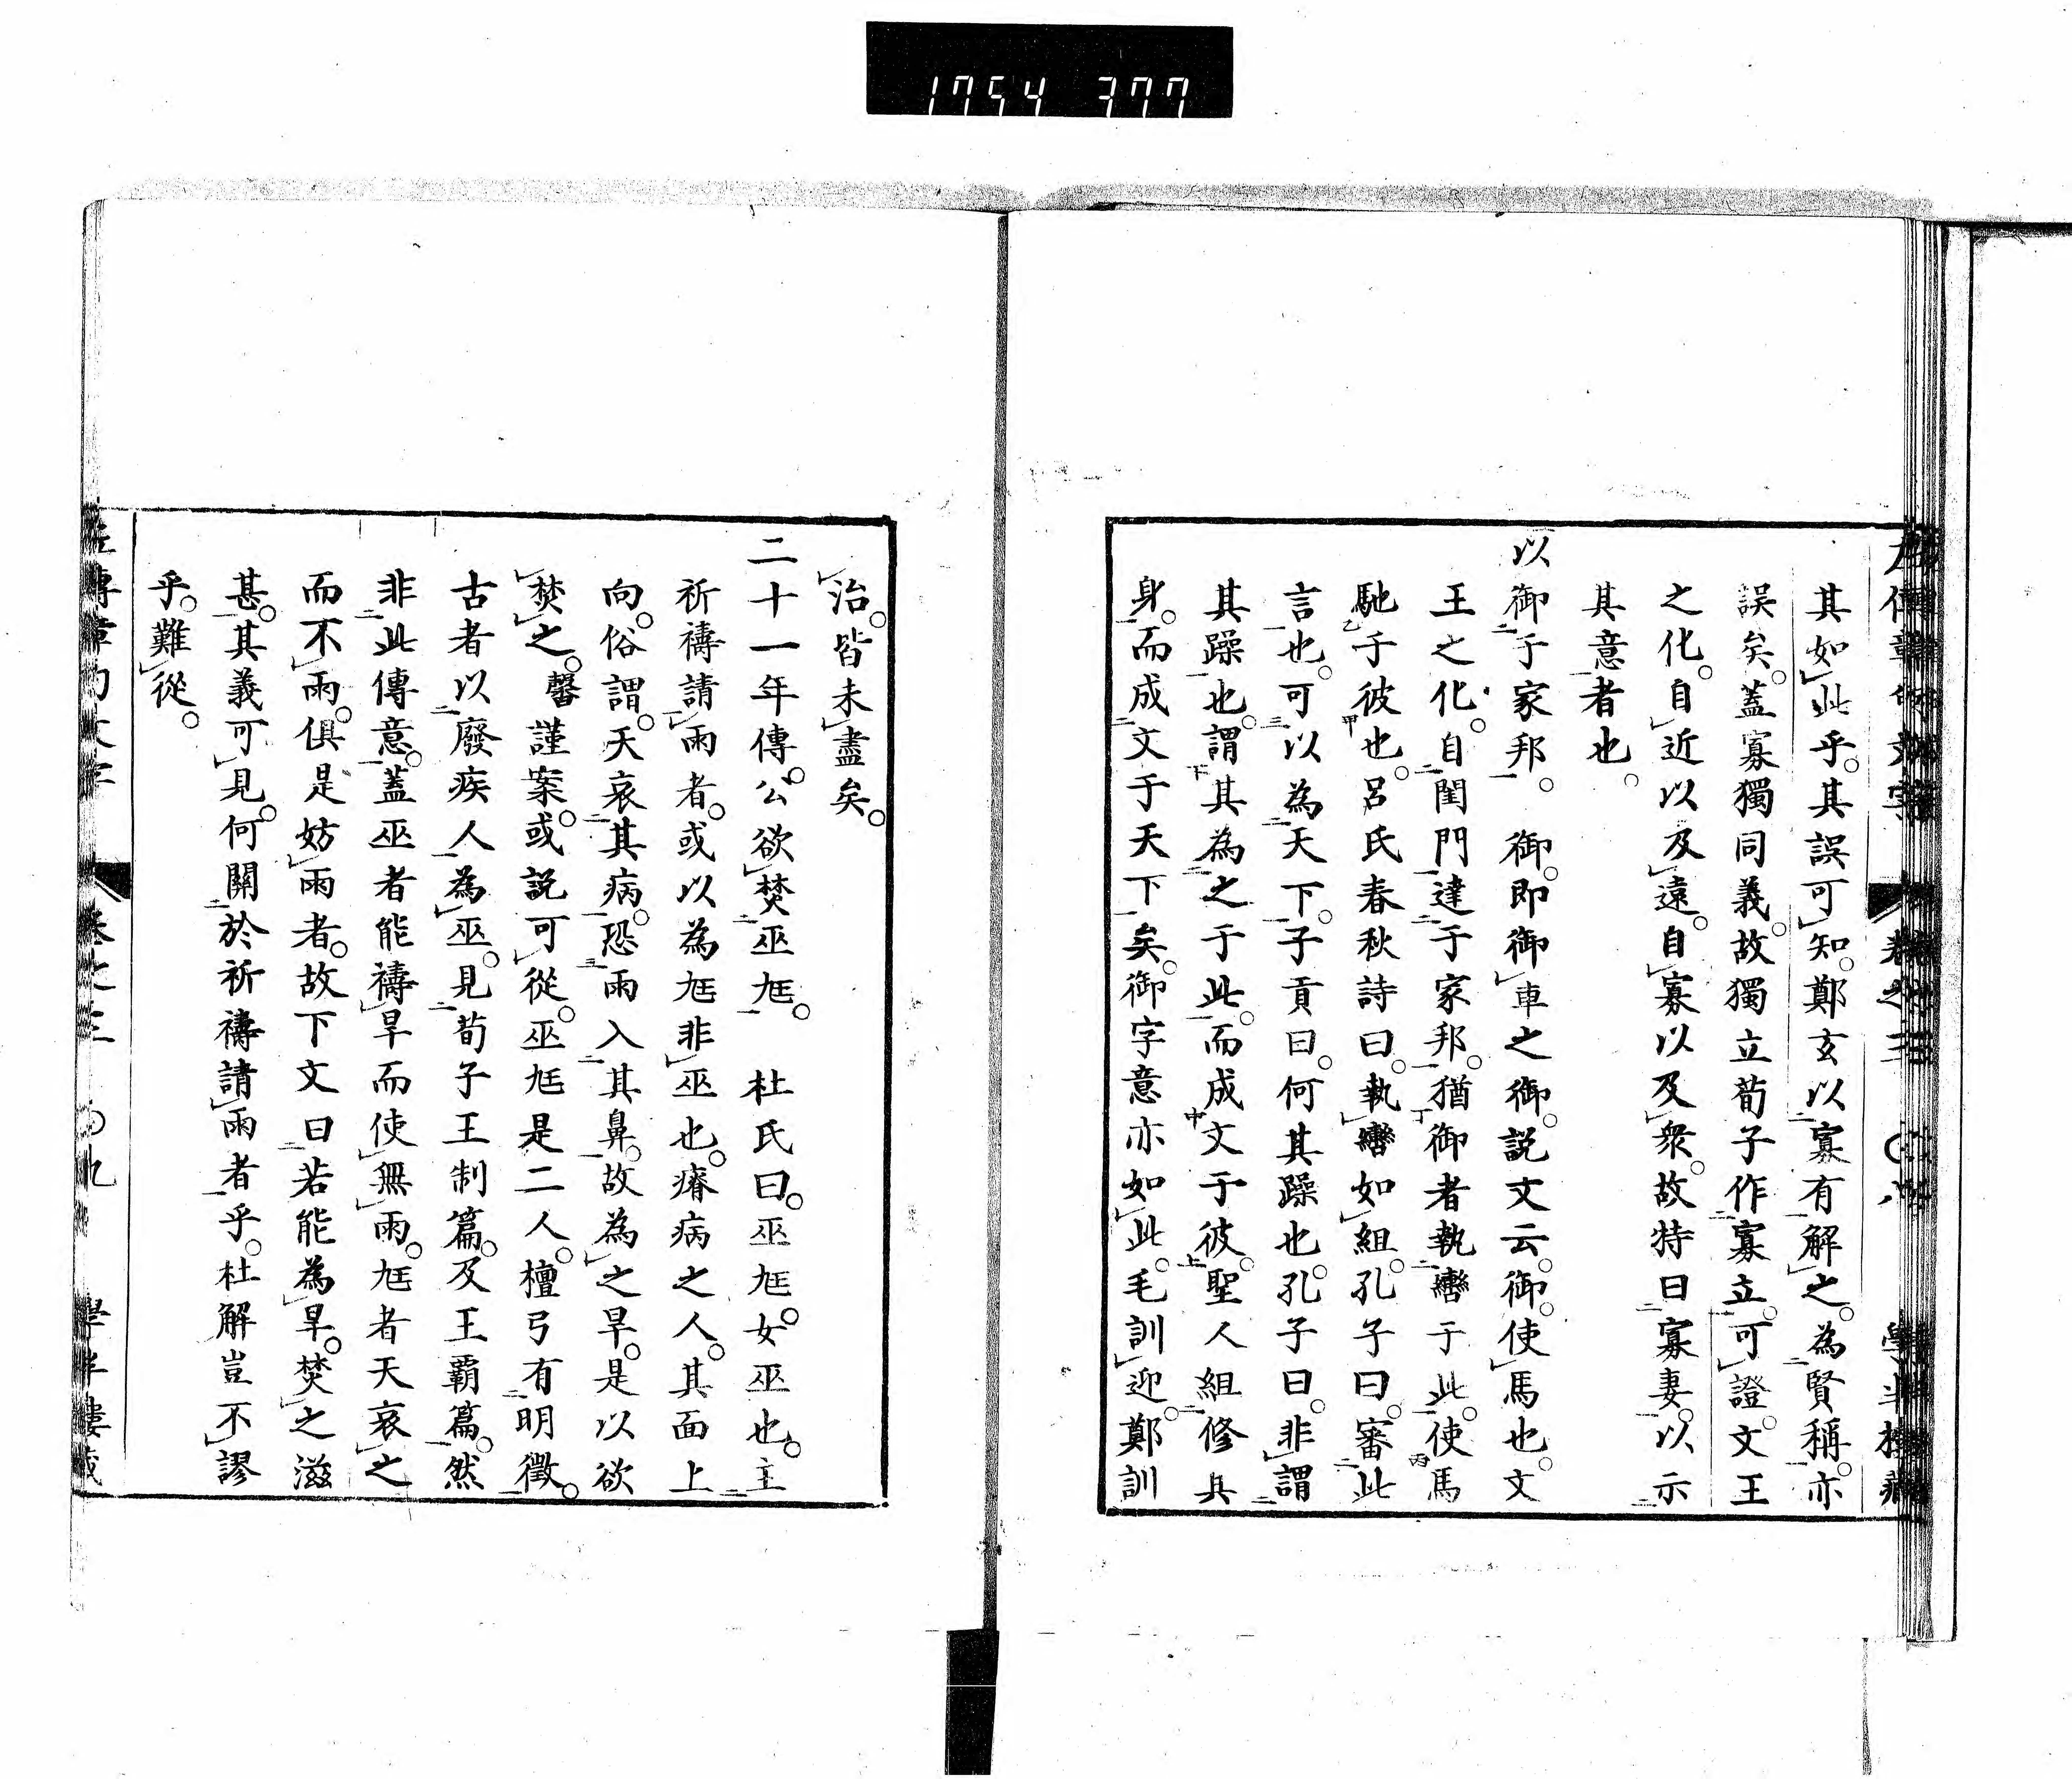 1754 377
其如此乎。其誤可知。鄭玄以寡有解之。為賢稱。亦
誤矣。蓋寡獨同義。故獨立荀子作寡立。可證。文王
之化。自近以及遠。自寡以及衆。故特曰寡妻。以示
其意者也。
以御于家邦。 御。即御車之御。説文云。御。使馬也。文
王之化。自閨門達于家邦。猶御者執轡于此。使馬
馳于彼也。呂氏春秋詩曰。執轡如組。孔子曰。審此
言也。可以為天下。子貢曰。何其躁也。孔子曰。非謂
其躁也。謂其為之于此。而成文于彼。聖人組修其
身。而成文于天下矣。御字意亦如此。毛訓迎。鄭訓
治。皆未盡矣。
二十一年傳。公欲焚巫尩。 杜氏曰。巫尩女巫也。主
祈禱請雨者。或以為尩非巫也。瘠病之人。其面上
向。俗謂。天哀其病。恐雨入其鼻。故為之旱。是以欲
焚之。馨謹案。或説可從。巫尩是二人。檀弓有明徵。
古者以廢疾人為巫。見荀子王制篇。及王霸篇。然
非此傳意。蓋巫者能禱旱而使無雨。尩者天哀之
而不雨。俱是妨雨者。故下文曰若能為旱。焚之滋
甚。其義可見。何關於祈禱請雨者乎。杜解豈不謬
乎。難從。
左傳章句文字 卷之三 〇九 學半樓藏